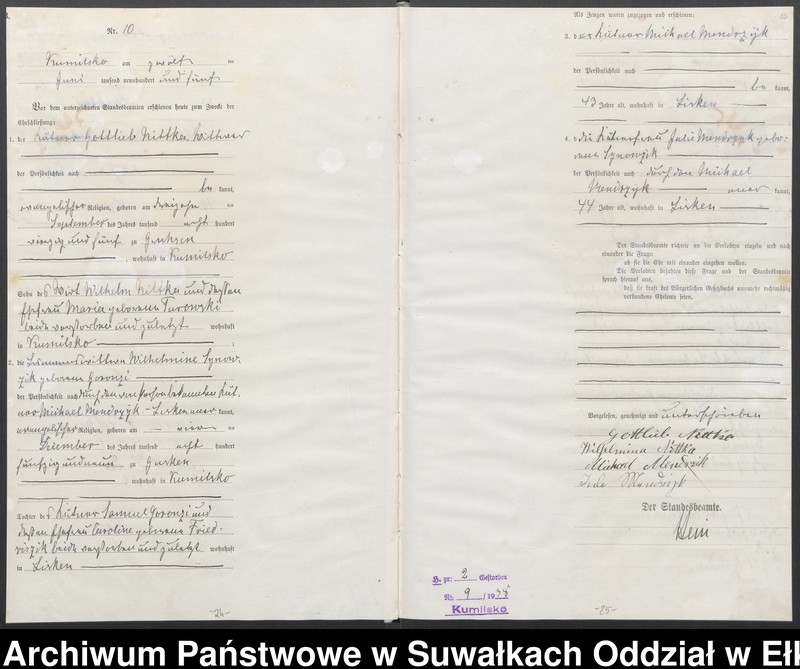 Nr. 10
Kumilsko am zwölften
Juni tausend neunhundert und fünf
Vor dem unterzeichneten Standesbeamten erschienen heute zum Zwecke der
Eheschließung:
1. der Kätner Gottlieb Nittka, Wittwer
der Persönlichkeit nach
be kannt,
evangelischer Religion, geboren am dreizehn ten
September des Jahres tausend acht hundert
vierzig und fünf zu
, wohnhaft in Kumilsko
Sohn des Wirt Wilhelm Nittka und dessen
Ehefrau Marie geborenen Turowski
beide verstorben und zuletzt wohnhaft
in Kumilsko ;
2. die Wilhelmine Synow-
zik geborene Goronzi
der Persönlichkeit nach durch den von Person bekannten Kät-
ner Michael Mendrzyk - Lisken aner kannt,
evangelischer Religion, geboren am vier ten
Dezember des Jahres tausend acht hundert
fünfzig und neun zu Gusken
, wohnhaft in Kumilsko
Tochter des Kätner Samuel Goronzi und
dessen Ehefrau Caroline geborenen Fried-
riszik beide verstorben und zuletzt wohnhaft
in Lisken
-24-
Als Zeugen waren zugezogen und erschienen:
3. der Kätner Michael Mendrzyk
der Persönlichkeit nach
be kannt,
43 Jahre alt, wohnhaft in Lisken
4. die Kätnerfrau Julie Mendrzyk gebo-
rene Synowzik
der Persönlichkeit nach durch den Michael
Mendrzyk aner kannt,
44 Jahre alt, wohnhaft in Lisken
Der Standesbeamte richtete an die Verlobten einzeln und nach
einander die Frage:
ob sie die Ehe mit einander eingehen wollen.
Die Verlobten bejahten diese Frage und der Standesbeamte
sprach hierauf aus,
daß sie kraft des Bürgerlichen Gesetzbuchs nunmehr rechtmäßig
verbundene Eheleute seien.
Vorgelesen, genehmigt und unterschrieben
Gottlieb Nittka
Wilhelmina Nittka
Michael Mendrzik
Julie Mendrzyk
Der Standesbeamte.
H. zu: 2 Gestorben
Nr. 9 / 1935
Kumilsko
-25-
Archiwum Państwowe w Suwałkach Oddział w Eł